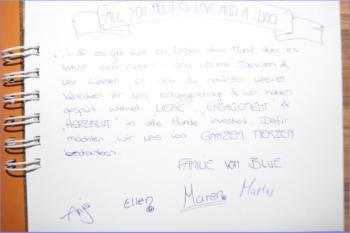 ALL YOU NEED IS LOVE AND A DOG
... & es gibt ein Leben ohne Hund, aber es
lohnt sich nicht! - und unsere &
wir wissen es zu schätzen wieviel
Vertrauen ihr uns entgegenbringt & wir haben
gespürt wieviel "LIEBE", "ENGAGEMENT" &
"HERZBLUT" in alle Hunde investiert. Dafür
möchten wir uns von GANZEM HERZEN
bedanken.
FAMILIE VON BLUE
Anja Ellen Maren Marlis